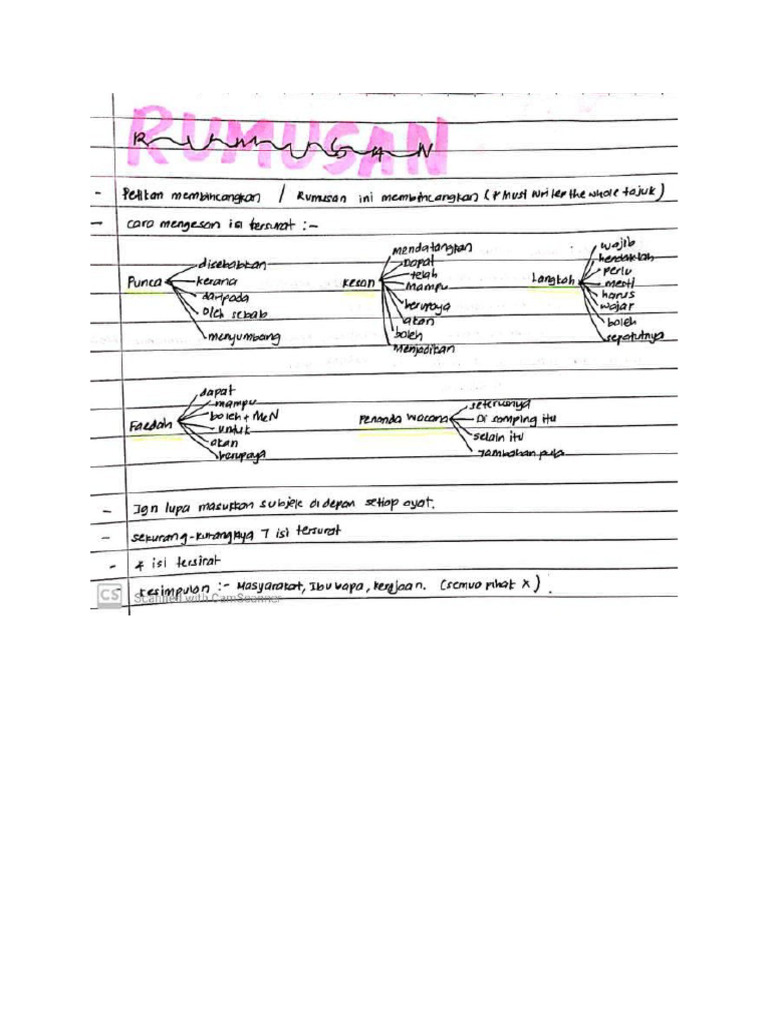 RUMUSAN
- Petikan membincangkan / Rumusan ini membincangkan (* Must writer the whole tajuk)
- cara mengesan isi tersurat :-
Punca
disebabkan
kerana
daripada
Oleh sebab
menyumbang
Kesan
mendatangkan
Dapat
telah
Mampu
berupaya
akan
boleh
Menjadikan
Langkah
wajib
hendaklah
perlu
mesti
harus
wajar
boleh
sepatutnya
Faedah
dapat
mampu
boleh + MeN
untuk
akan
berupaya
Penanda Wacana
seterusnya
Di samping itu
selain itu
Tambahan pula
- Jgn lupa masukkan subjek di depan setiap ayat.
- sekurang-kurangnya 7 isi tersurat
- 4 isi tersirat
- kesimpulan :- Masyarakat, Ibu bapa, kerajaan. (semua pihak X).
CS Scanned with CamScanner